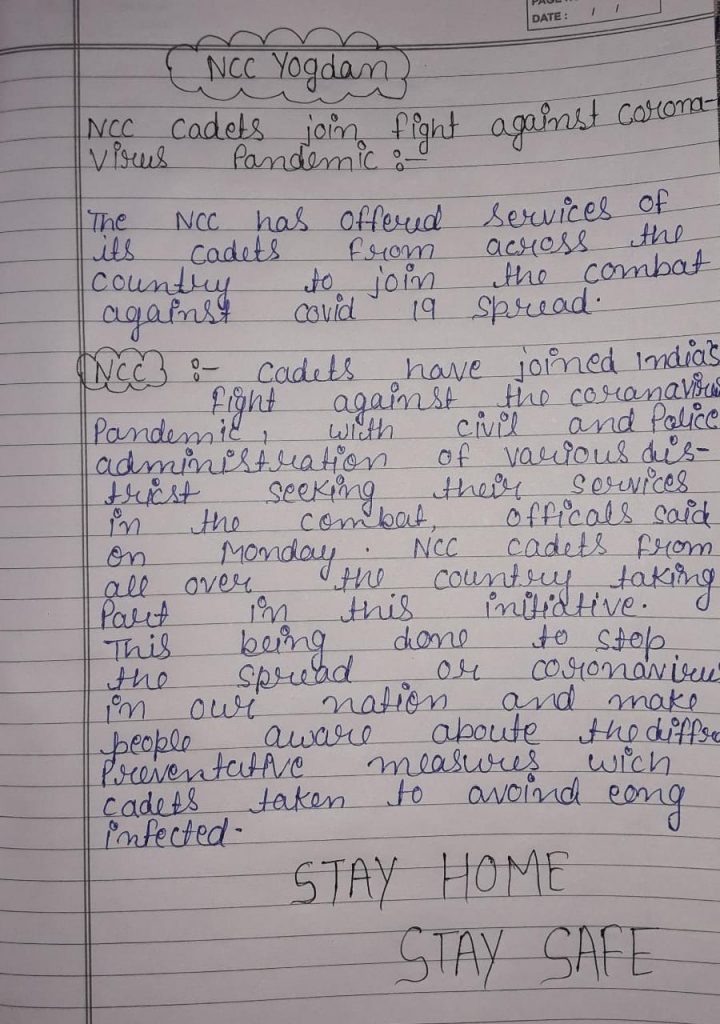 DATE : / /
NCC Yogdan
NCC cadets join fight against corona-
virus Pandemic :-
The NCC has offered services of
its cadets from across the
country to join the combat
against covid 19 spread.
NCC :- cadets have joined India's
fight against the coranavirus
Pandemic, with civil and Police
administration of various dis-
trict seeking their services
in the combat, officals said
on Monday. NCC cadets from
all over the country taking
Part in this initiative.
This being done to stop
the spread or coronaviru
in our nation and make
people aware aboute the diffre
Preventative measures wich
cadets taken to avoind eong
infected.
STAY HOME
STAY SAFE